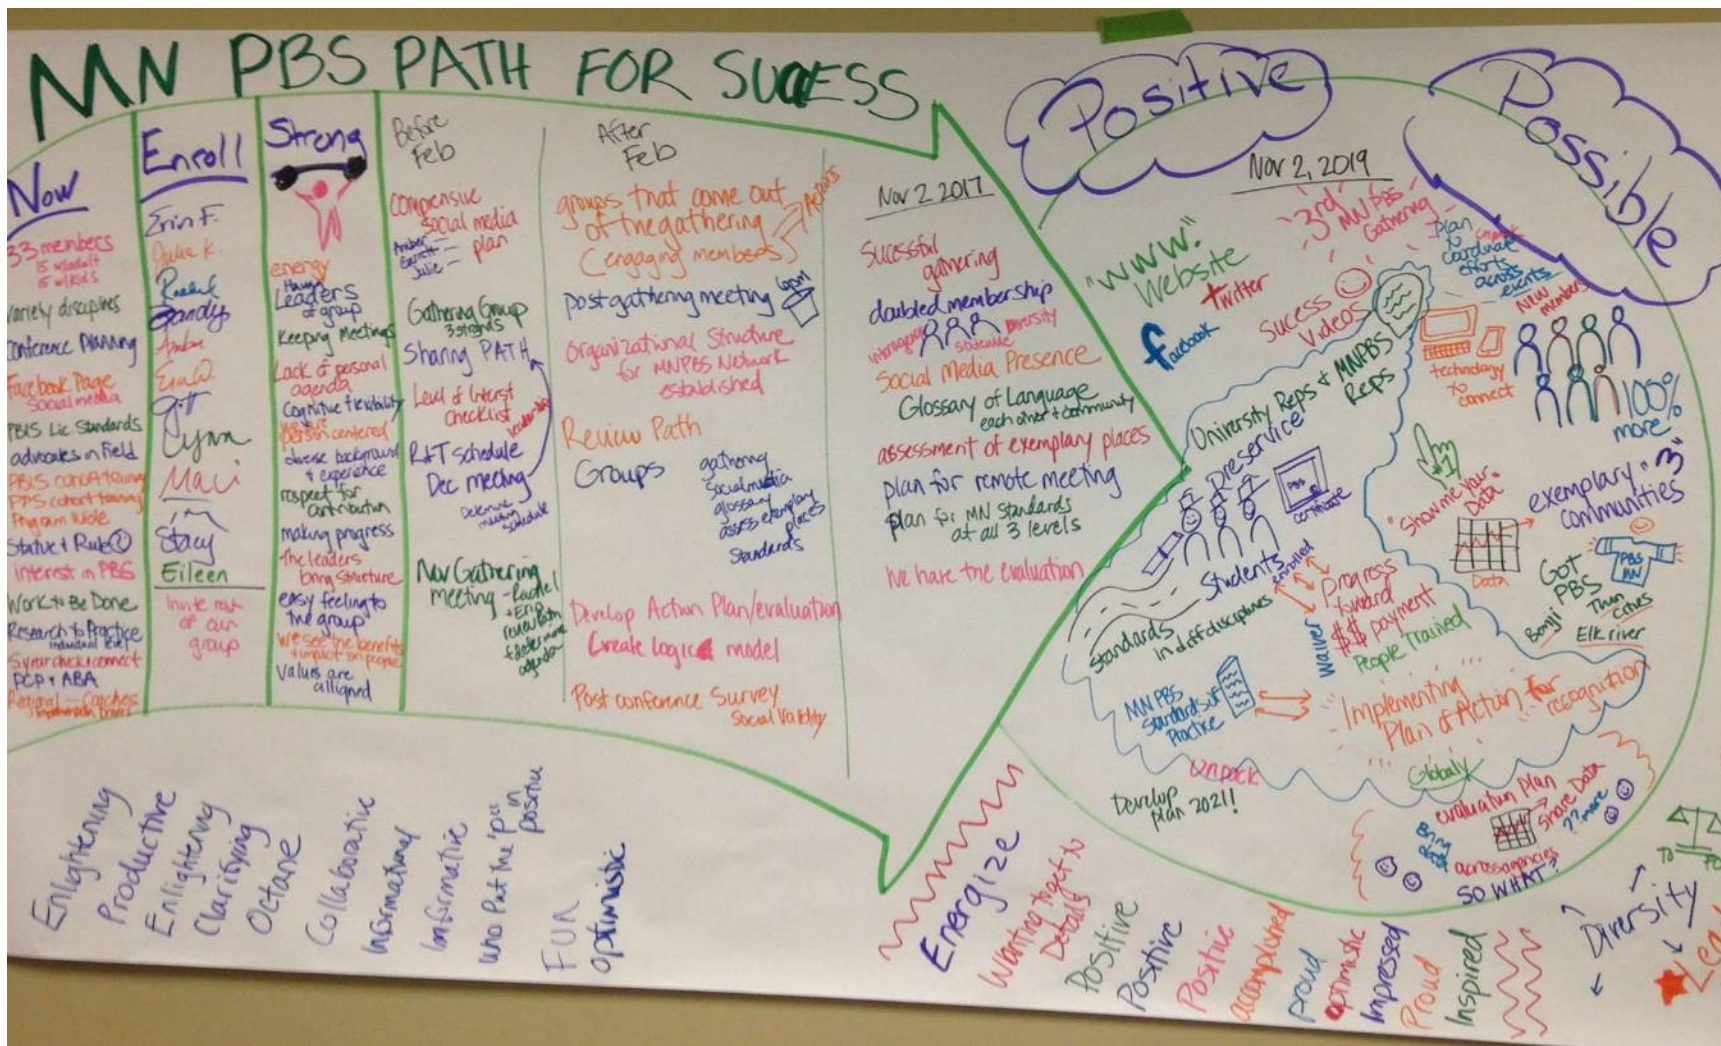 MN PBS PATH FOR SUCESS
Now
33 members
15 w/adult
15 w/kids
variety discipines
Conference Planning
Facebook Page
Social media
PBIS Lic. Standards
advocates in Field
PBIS cohort training
PPS cohort training
Program Wide
Statue + Rule
interest in PBS
Work to Be Done
Research to Practice
individual level
check + connect
PCP + ABA
Regional — Coaches
Enroll
Erin F.
Julie K.
Rachel
Amber
Erin W.
Lynn
Maci
Tim
Stacy
Eileen
Invite rest
of our
group
Strong
energy
Having
Leaders
of group
Keeping Meetings
Lack of personal
agenda
Cognitive flexibility
we are
person centered
diverse background
+ experience
respect for
contribution
making progress
The leaders
bring structure
easy feeling to
the group
we see the benefits
+ impact on people
Values are
alligned
Before
Feb
compensive
social media
plan
Amber —
Garrett —
Julie —
Gathering Group
3 strands
Sharing PATH
Level of Interest
checklist
leadership
R+T schedule
Dec meeting
Determine
meeting
schedule
Nov Gathering
meeting - Rachel
+ Erin
review path
+ determine
agenda
After
Feb
groups that come out
of the gathering
(engaging members)
Actions
post gathering meeting
6pm
Organizational Structure
for MNPBS Network
established
Review Path
Groups
gathering
social media
glossary
assess exemplary
places
Standards
Develop Action Plan/evaluation
Create logic model
Post conference Survey
Social Validity
Nov 2 2017
Sucessful
gathering
doubled membership
interagency
statewide
diversity
Social Media Presence
Glossary of Language
each other + community
assessment of exemplary places
plan for remote meeting
plan for MN Standards
at all 3 levels
We have the evaluation
Positive
Possible
Nov 2, 2019
3rd
MN PBS
Gathering
"WWW."
Website
twitter
facebook
Sucess
Videos
Plan
to
coordinate
efforts
across
events
New
members
technology
to
connect
100%
more
University Reps + MNPBS
Reps
preservice
PBS
certificate
Students
enrolled
Standards
in diff disciplines
Waiver
Progress
toward
$$ payment
People Trained
"Show me your
Data"
Data
exemplary "3"
communities
Got
PBS
PBS
MN
Bemiji
Twin
Cities
Elk river
MN PBS
Standards of
Practice
Implementing
Plan of Action for
recognition
Globaly
unpack
Develop
plan 2021!
evaluation Plan
Bring
Data
Share Data
??more
across agencies
SO WHAT?
Diversity
Enlightening
Productive
Enlightering
Clarifying
Octane
Collaborative
Informational
Informative
Who Put the "p" in
positive
FUN
optimistic
Energize
Wanting to get to
Details
Positive
Positive
Positive
accomplished
proud
optimistic
Impressed
Proud
Inspired